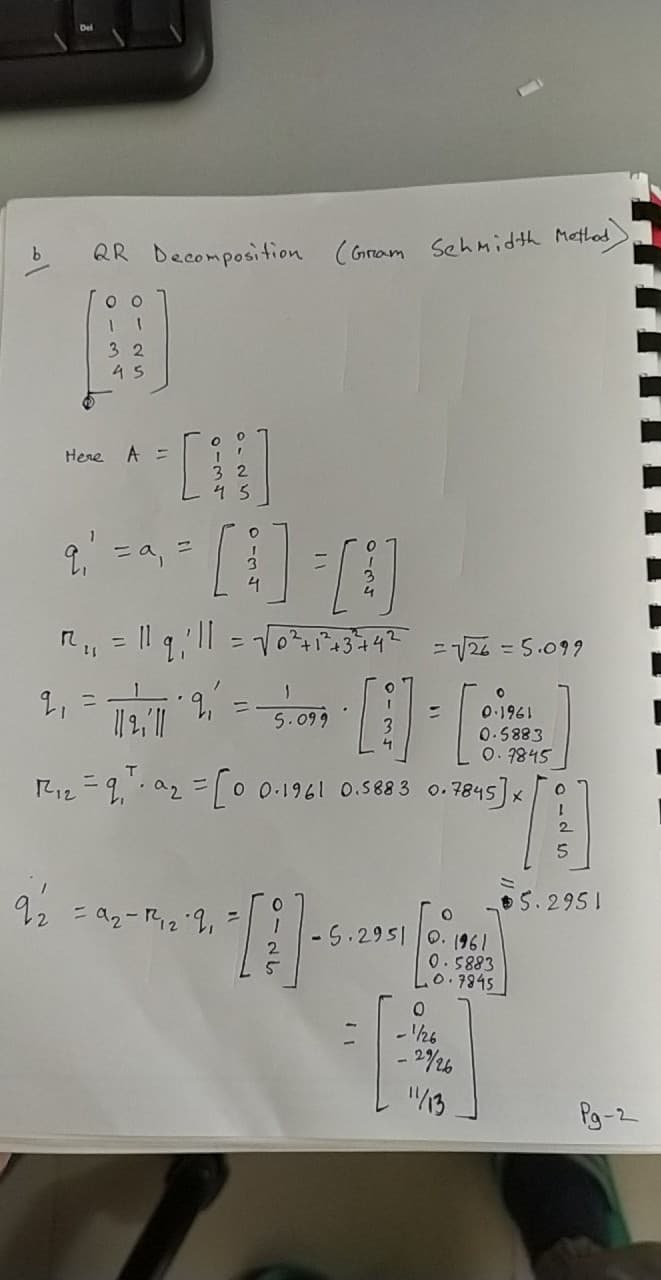 Del
b QR Decomposition (Gram Schmidth Method)
[0 0
1 1
3 2
4 5]
Here A = [0 0
1 1
3 2
4 5]
q₁' = a₁ = [0 1 3 4] = [0 1 3 4]
r₁₁ = ||q₁'|| = √0²+1²+3²+4² = √26 = 5.099
q₁ = 1/||q₁'|| · q₁' = 1/5.099 · [0 1 3 4] = [0 0.1961 0.5883 0.7845]
r₁₂ = q₁ᵀ · a₂ = [0 0.1961 0.5883 0.7845] × [0 1 2 5]
= 5.2951
q₂' = a₂ - r₁₂ · q₁ = [0 1 2 5] - 5.2951 [0 0.1961 0.5883 0.7845]
= [0 -1/26 -29/26 11/13]
Pg-2